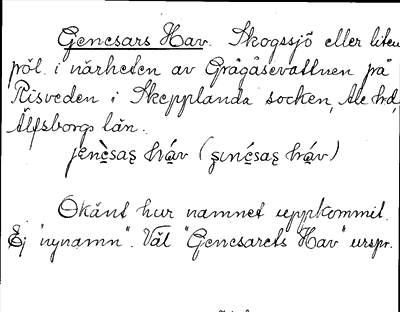 Genesars Hav. Skogssjö eller liten
pöl i närheten av Grågåsevattnen på
Risveden i Skepplanda socken, Ale hd,
Älfsborgs län.
Okänt hur namnet uppkommit.
Ej "nynamn". Väl "Genesarets Hav" urspr.